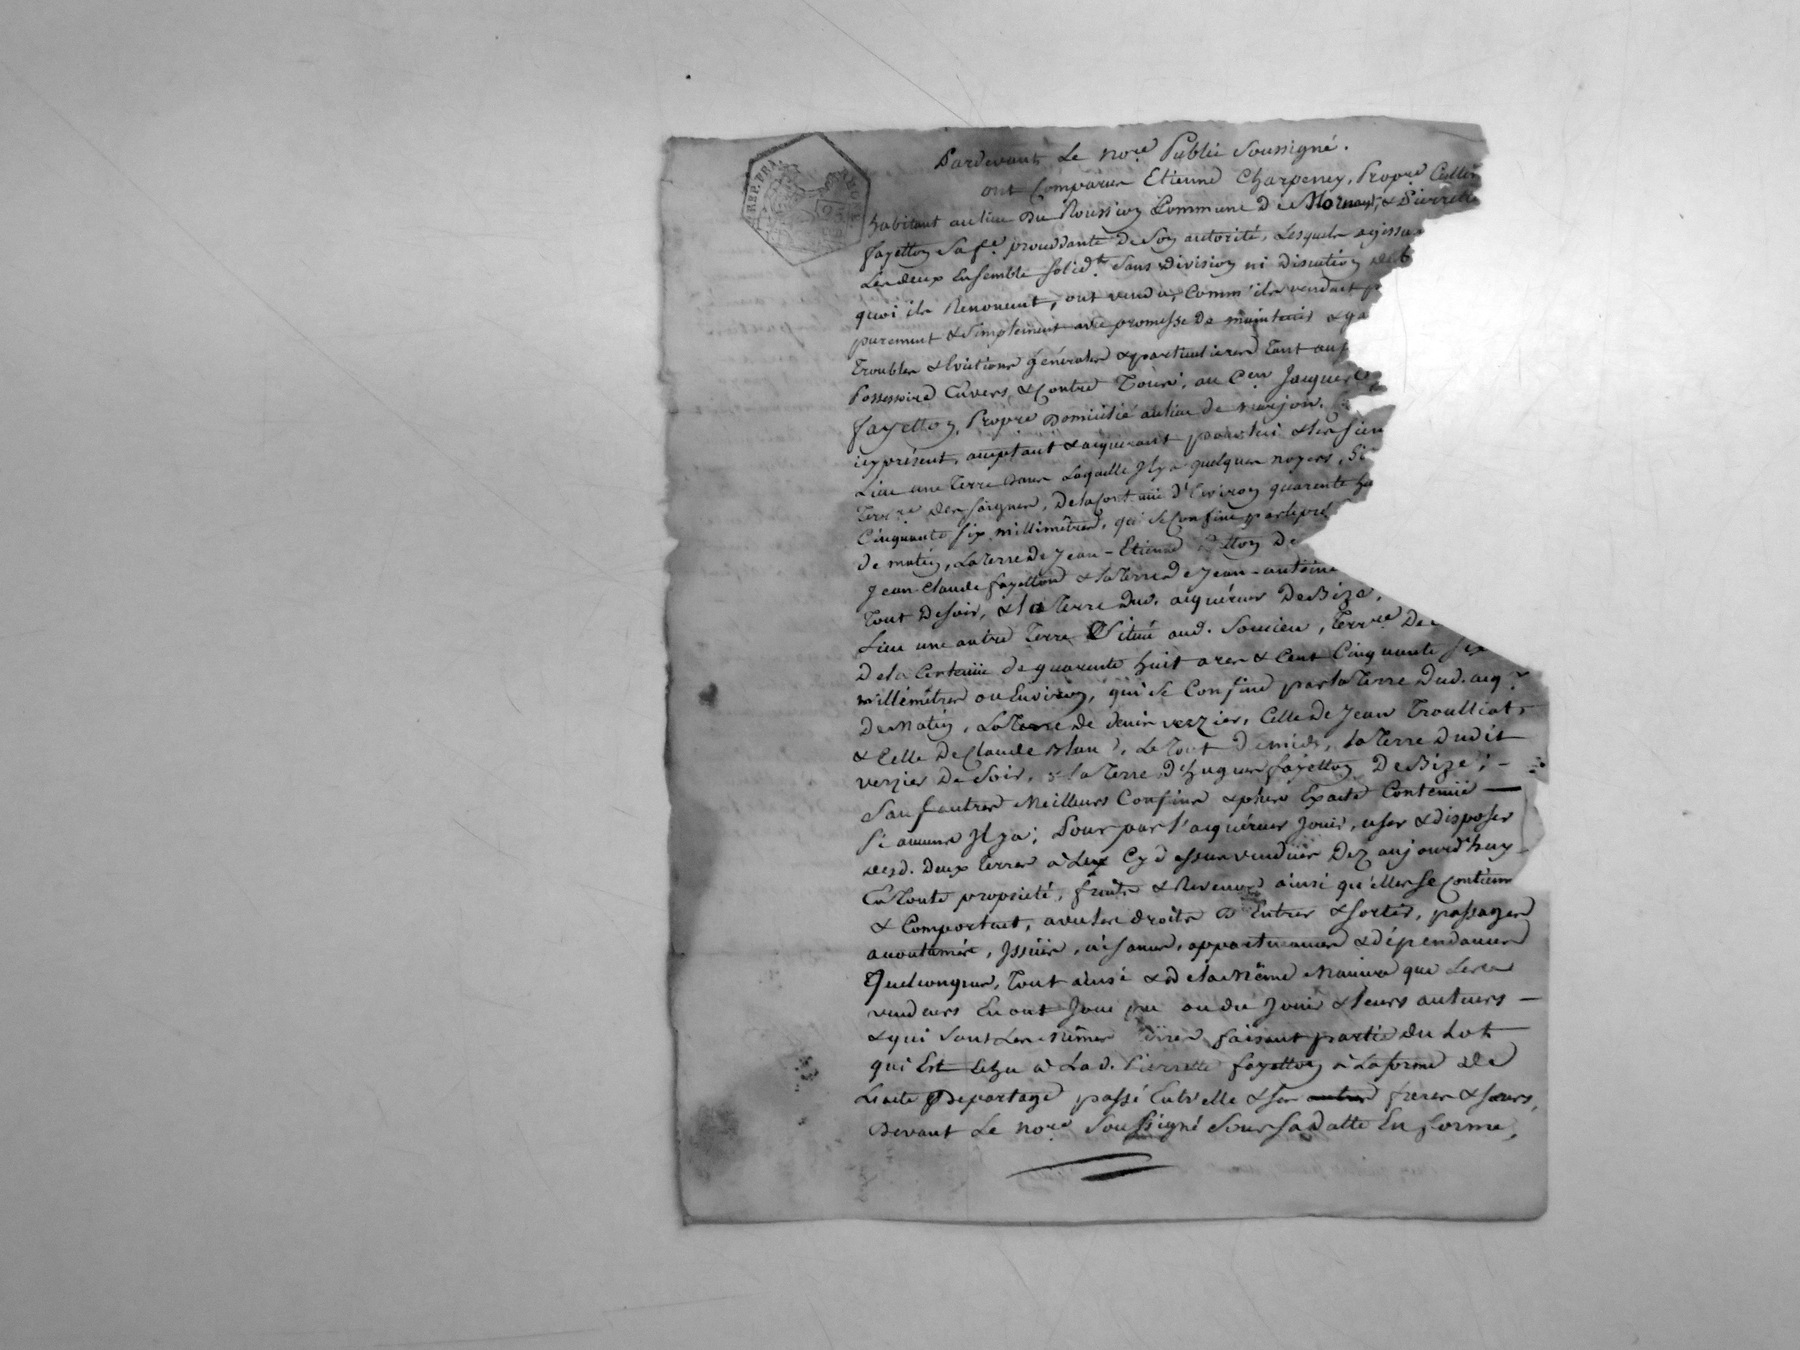 REP. FRA.
Pardevant Le nore Public Soussigné.
ont Comparus Etienne Charpeney, Propre Culti
habitant au lieu Du Roussion Commune De Mornant, & Pierrette
fayetton Sa fe. proceddante De Son autorité, Lesquels agissa
Les deux Ensemble Solidt. Sans Division ni Discution
quoi ils Renoncent, ont vendu, Comm'ils vendent p
purement & Simplement avec promesse De maintenir & ga
Troubles & Evictions générales & particulieres Tant au p
Possessoire Envers & Contre Tous, au Cen Jacques
fayetton, Propre Domicilié au lieu de
icy présent, acceptant & acquerant pour lui & les Sien
Lieu une Terre Dans Laquelle Il y a quelques noyers, Si
Terrre. Des Saignes, De la Contenüe d'Environ quarente hu
Cinquante Six millimêtres, qui Se Confine par le pré
De matin, La Terre De Jean-Etienne De
Jean-Claude fayetton & la Terre De Jean-antoine
Tout De Soir, & la Terre Dud. acquéreur De Bize.
Lieu une autre Terre Située aud. Soucieu, Terrre De
De la Contenüe de quarente huit ares & Cent Cinquante Six
millimêtres ou Environ, qui Se Confine par la Terre Dud. acqr
De Matin, La Terre de Denis verzier, Celle De Jean Troulliat
& Celle De Claude Le Tout De midi, la Terre Dudit
verzier De Soir, & la Terre D'hugues fayetton De Bize; -
Sauf autres Meilleurs Confins & plus Exacte Contenüe —
Si aucune Il y a; Pour par l'acquéreur Jouir, user & disposer
desd. Deux Terres à Lui Cy dessus vendües Dez aujourd'huy
En Toute propriété, fruits & Revenus ainsi qu'elles Se Contiene
& Comportent, avec les droits D'Entrer & Sortir, passages
accoutumés, Issües, aisances, appartenances & dépendances
Quelconques, Tout ainsi & de la Même Maniere que Les
vendeurs En ont Joui pu ou du Jouir & leurs auteurs —
& qui Sont Les Mêmes faisant partie Du Lot
qui Est Echu à La d. Pierrette fayetton à La forme De
L'acte De partage passé Entr'elle & Ses frères & Sœurs,
Devant Le nore Soussigné Sous Sa Datte En forme,